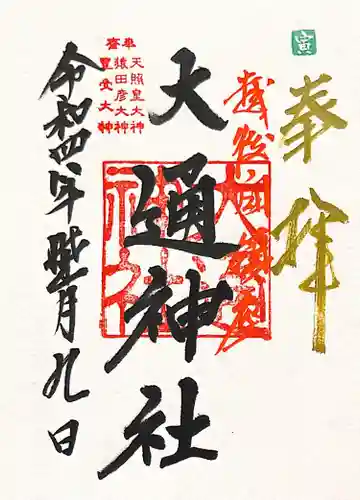 寅
奉拝
大通神社
奉齋
天照皇大神
猿田彦大神
豊受大神
令和四年睦月九日